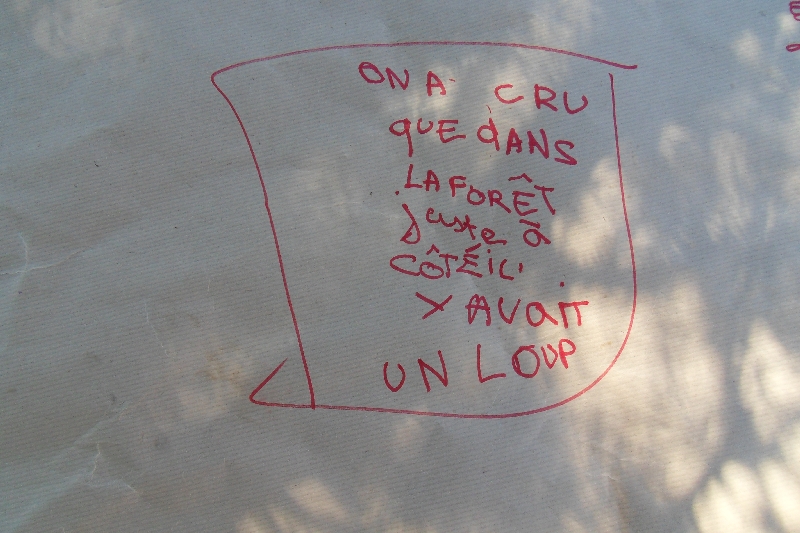 ON A CRU
QUE dANS
LA FORÊT
juste à
CÔTÉ iL
Y AVaiT
UN LOUP